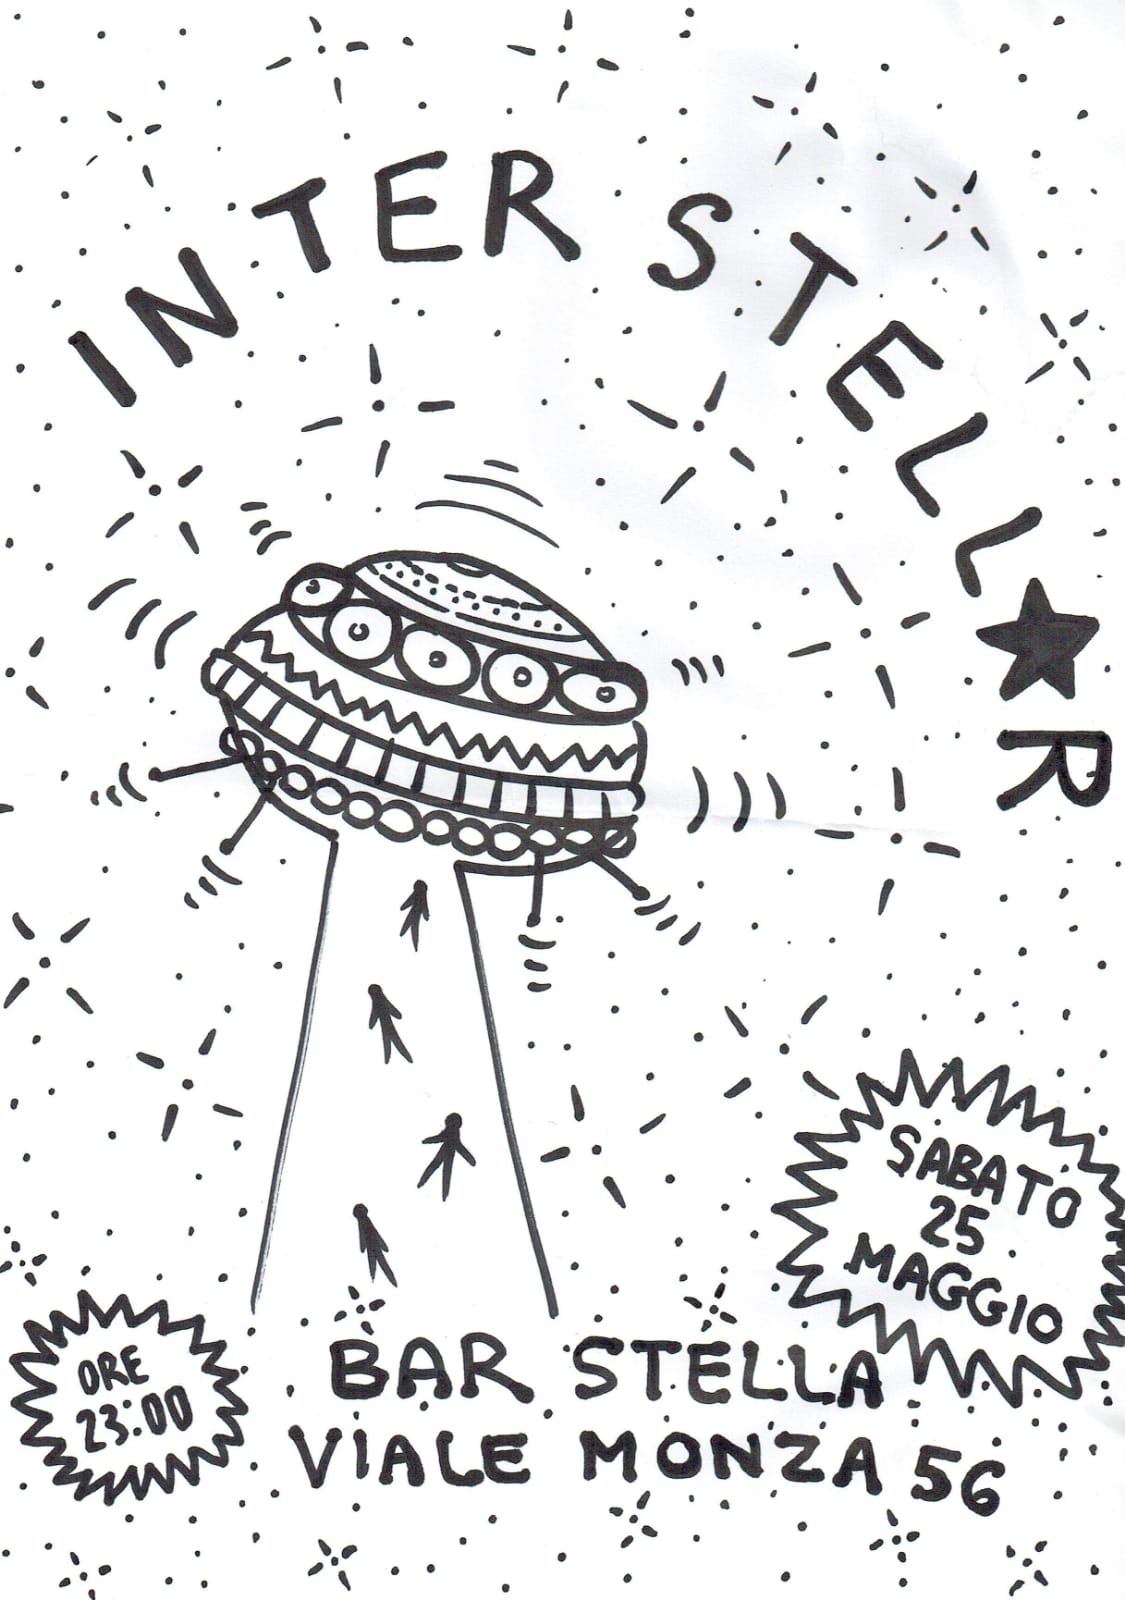 INTER STELL★R
SABATO
25
MAGGIO
ORE
23:00
BAR STELLA
VIALE MONZA 56